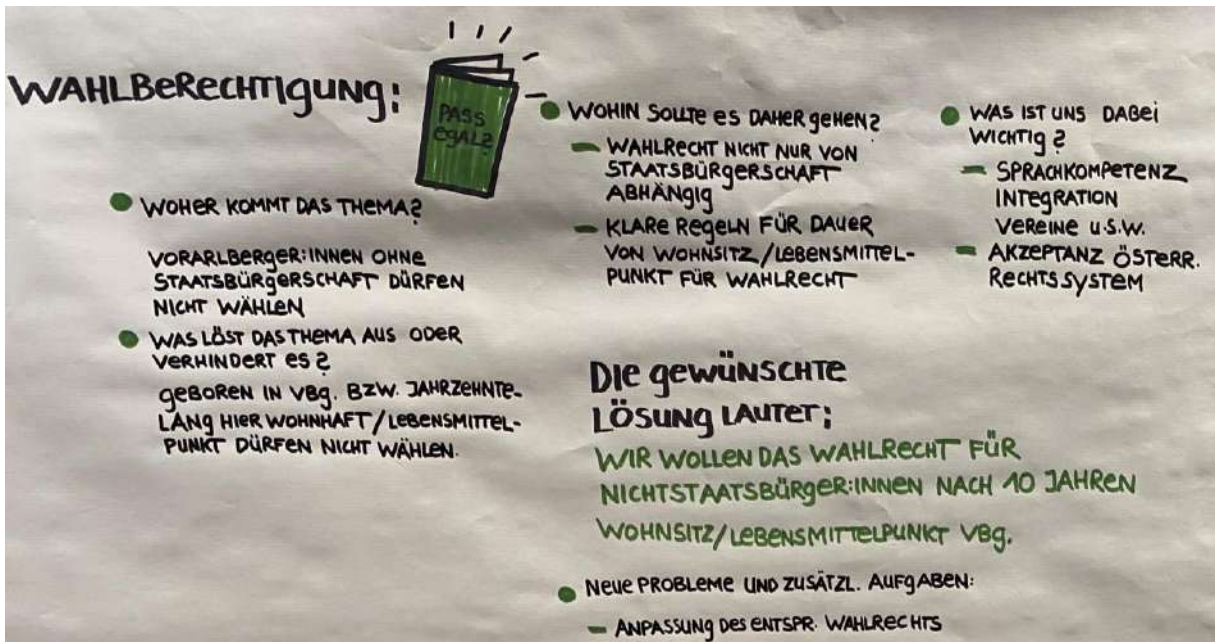 WAHLBERECHTIGUNG:
PASS
EGAL?
WOHER KOMMT DAS THEMA?
VORARLBERGER:INNEN OHNE
STAATSBÜRGERSCHAFT DÜRFEN
NICHT WÄHLEN
WAS LÖST DAS THEMA AUS ODER
VERHINDERT ES?
GEBOREN IN VBG. BZW. JAHRZEHNTE-
LANG HIER WOHNHAFT/LEBENSMITTEL-
PUNKT DÜRFEN NICHT WÄHLEN.
WOHIN SOLLTE ES DAHER GEHEN?
– WAHLRECHT NICHT NUR VON
STAATSBÜRGERSCHAFT
ABHÄNGIG
– KLARE REGELN FÜR DAUER
VON WOHNSITZ/LEBENSMITTEL-
PUNKT FÜR WAHLRECHT
WAS IST UNS DABEI
WICHTIG?
– SPRACHKOMPETENZ
INTEGRATION
VEREINE U.S.W.
– AKZEPTANZ ÖSTERR.
RECHTSSYSTEM
DIE GEWÜNSCHTE
LÖSUNG LAUTET:
WIR WOLLEN DAS WAHLRECHT FÜR
NICHTSTAATSBÜRGER:INNEN NACH 10 JAHREN
WOHNSITZ/LEBENSMITTELPUNKT VBG.
NEUE PROBLEME UND ZUSÄTZL. AUFGABEN:
– ANPASSUNG DES ENTSPR. WAHLRECHTS